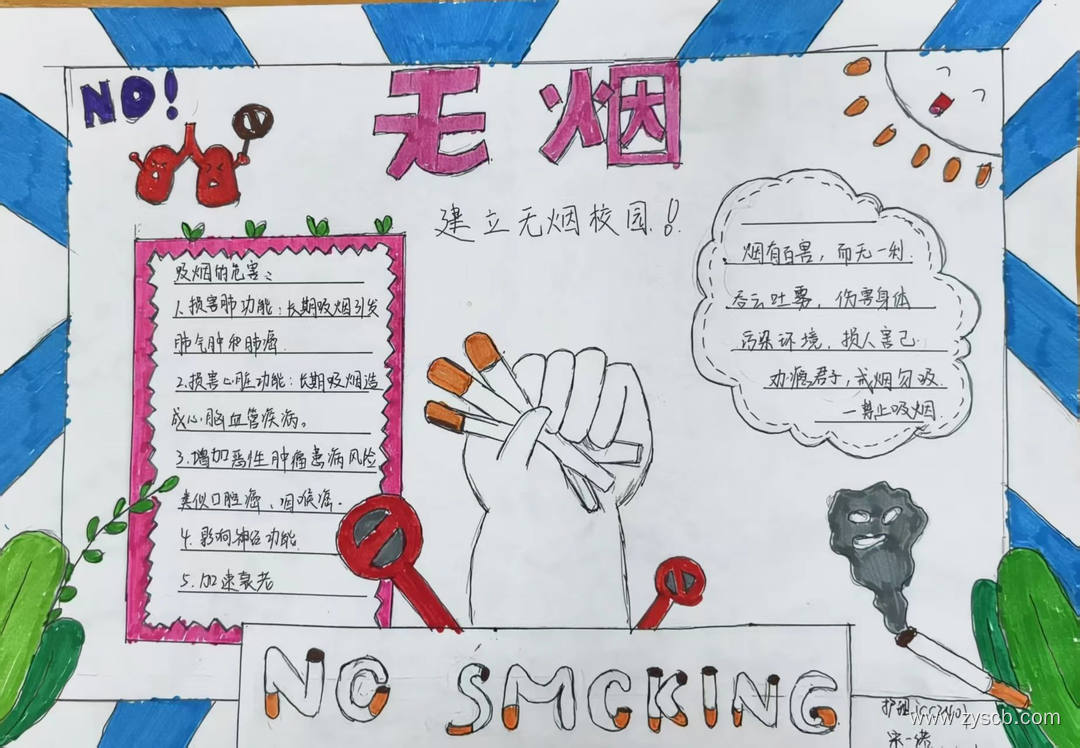 NO!
无烟
建立无烟校园!!
吸烟的危害:
1.损害肺功能:长期吸烟引发
肺气肿和肺癌.
2.损害心脏功能:长期吸烟造
成心脑血管疾病。
3.增加恶性肿瘤患病风险
类似口腔癌、咽喉癌.
4.影响神经功能.
5.加速衰老
烟有百害,而无一利.
吞云吐雾,伤害身体
污染环境,损人害己.
劝瘾君子,戒烟勿吸.
—禁止吸烟.
NO SMOKING
www.zyscb.com